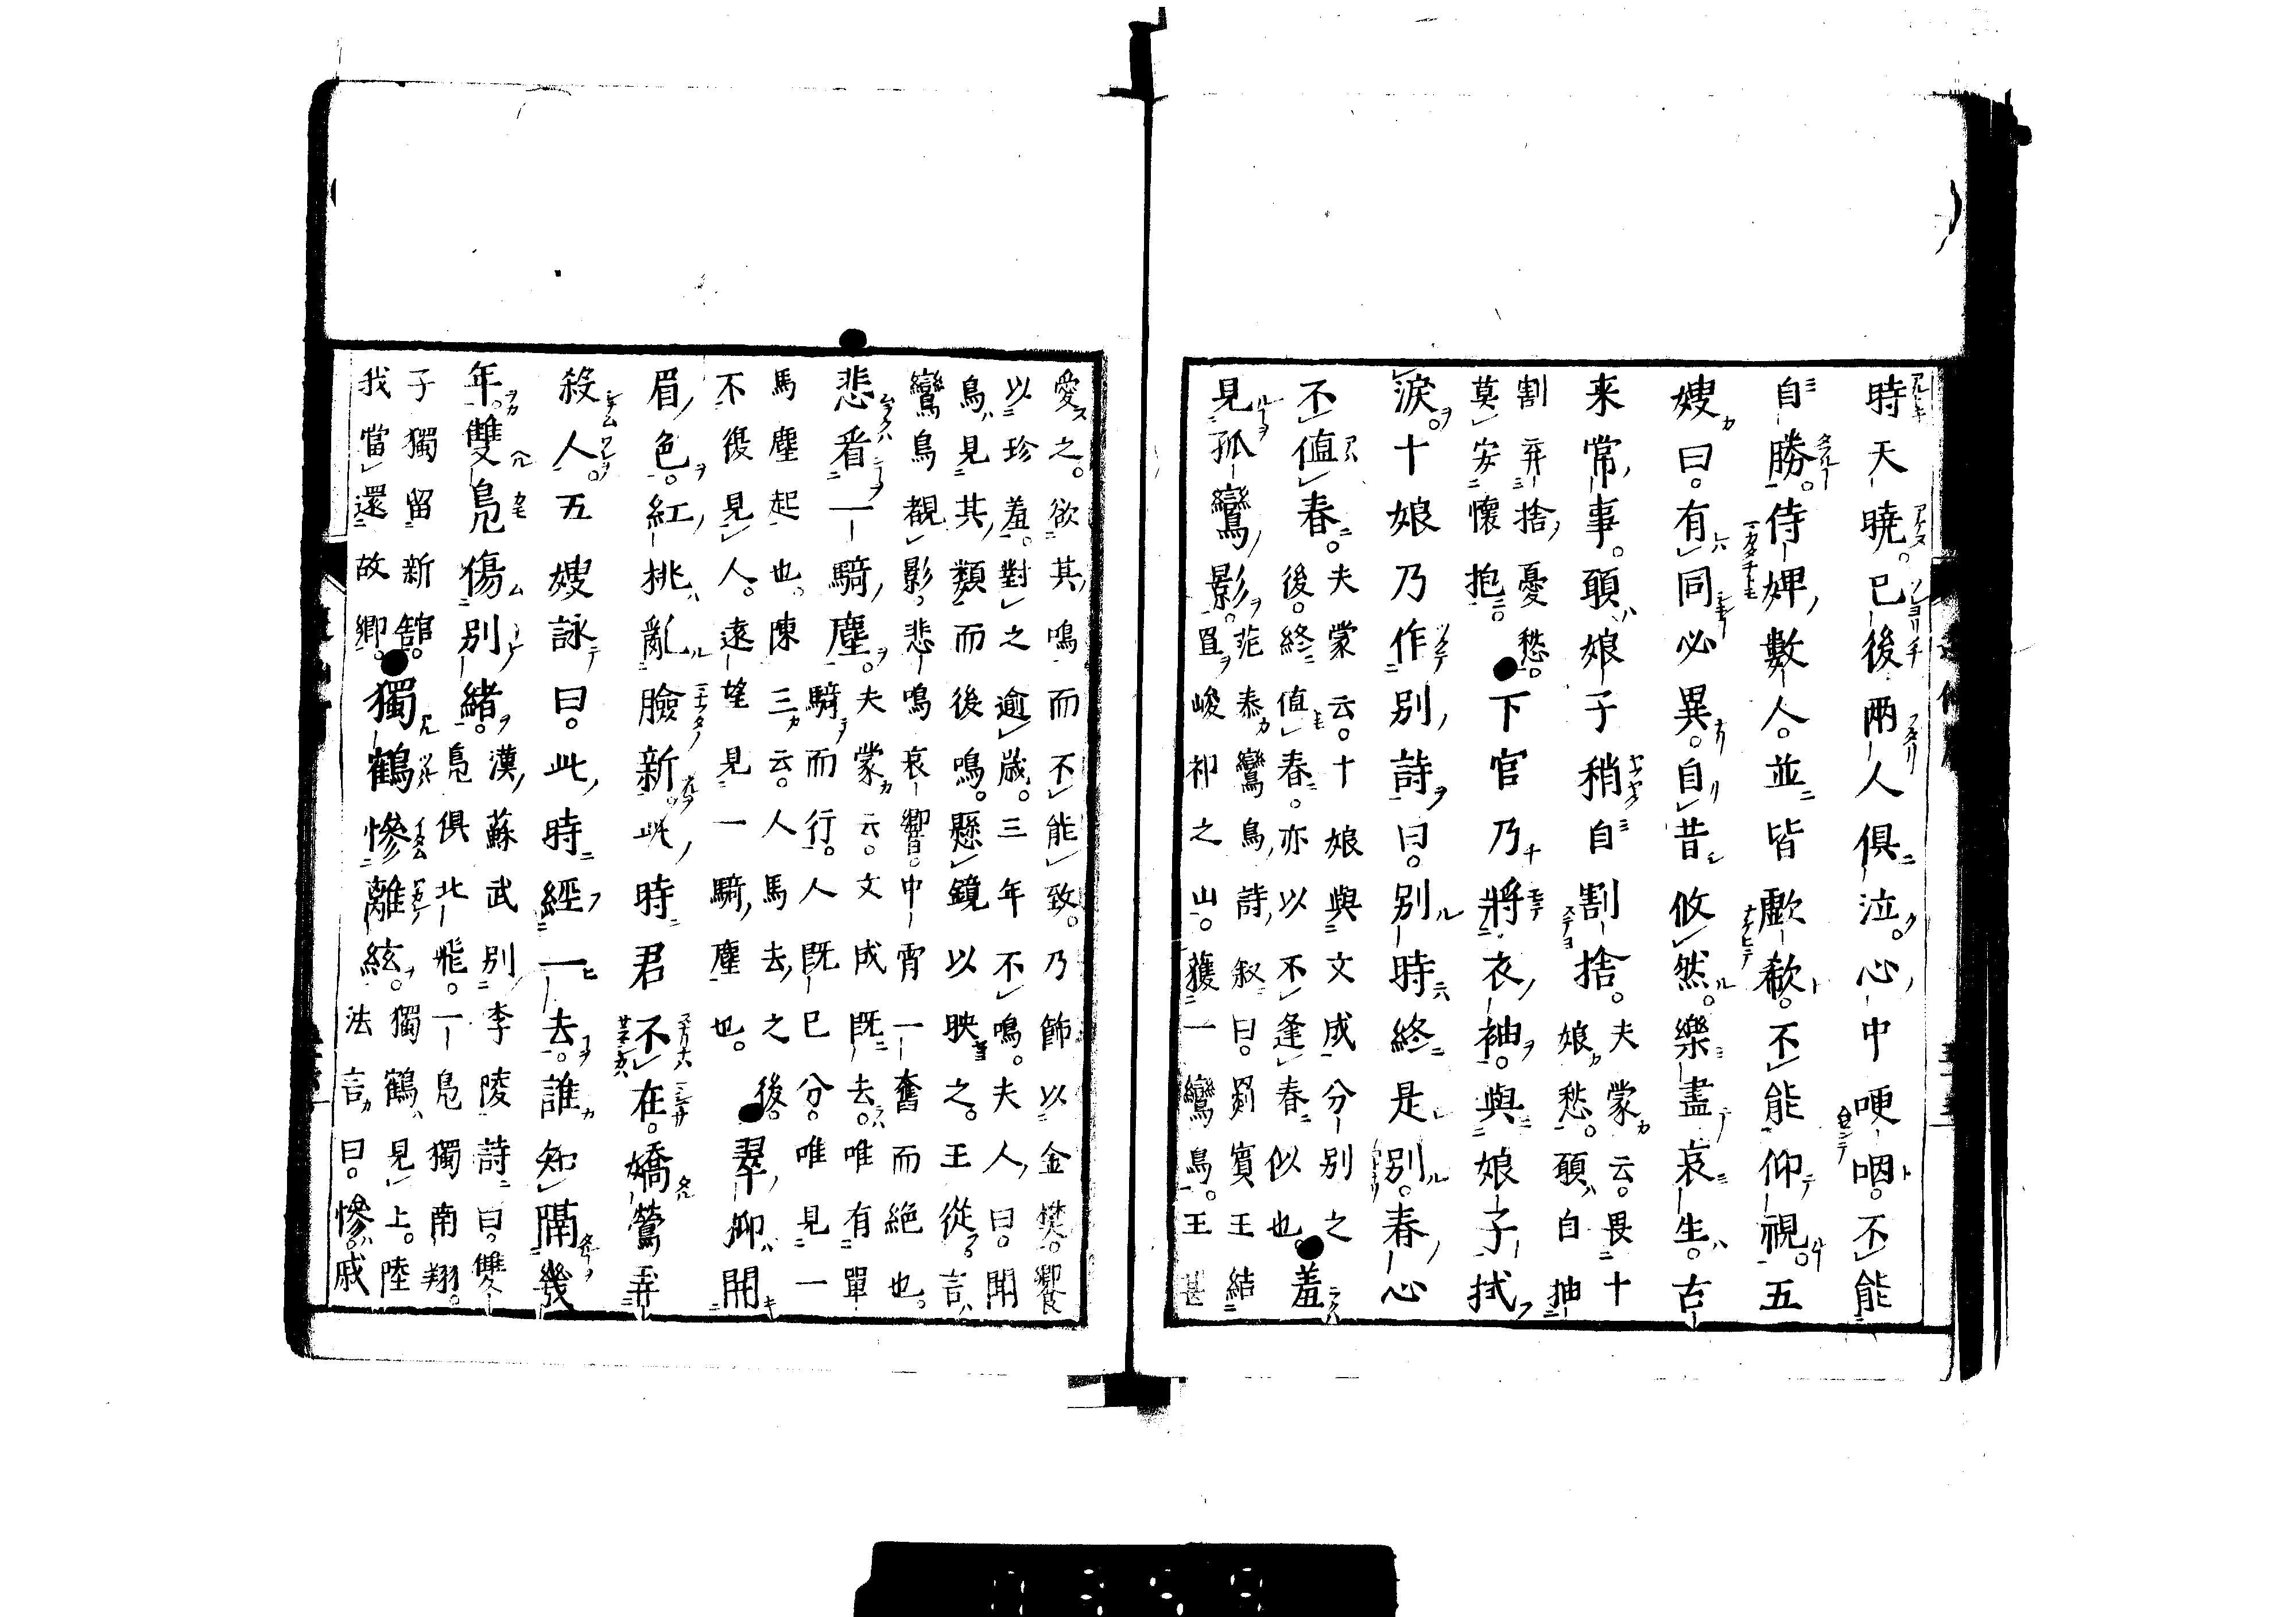 時天曉。已後兩人俱泣。心中哽咽。不能
自勝。侍婢數人。並皆歔欷。不能仰視。五
嫂曰。有同必異。自昔攸然。樂盡哀生。古
来常事。願娘子稍自割捨。夫蒙云。畏十
娘愁。願自抽
割弃捨憂愁。
莫安懷抱。下官乃將衣袖。與娘子拭
淚。十娘乃作別詩曰。別時終是別。春心
不值春。夫蒙云。十娘與文成分別之
後。終值春。亦以不逢春似也。羞
見孤鸞影。范泰鸞鳥詩叙曰。罽賓王結
罝峻祁之山。獲一鸞鳥。王甚
愛之。欲其鳴而不能致。乃飾以金樊。饗
以珍羞。對之逾歲。三年不鳴。夫人曰。聞
鳥見其類而後鳴。懸鏡以映之。王從言。
鸞鳥覩影。悲鳴哀響。中宵一奮而絕也。
悲看一騎塵。夫蒙云。文成既去。唯有單
騎而行。人既已分。唯見一
馬塵起也。陳三云。人馬去之後。
不復見人。遠望見一騎塵也。翠柳開
眉色。紅桃亂臉新。此時君不在。嬌鶯弄
殺人。五嫂詠曰。此時經一去。誰知隔幾
年。雙鳧傷別緒。漢蘇武別李陵詩曰。雙
鳧俱北飛。一鳧獨南翔。
子獨留新舘。
我當還故鄉。獨鶴慘離絃。獨鶴見上。陸
法言曰。慘。慼